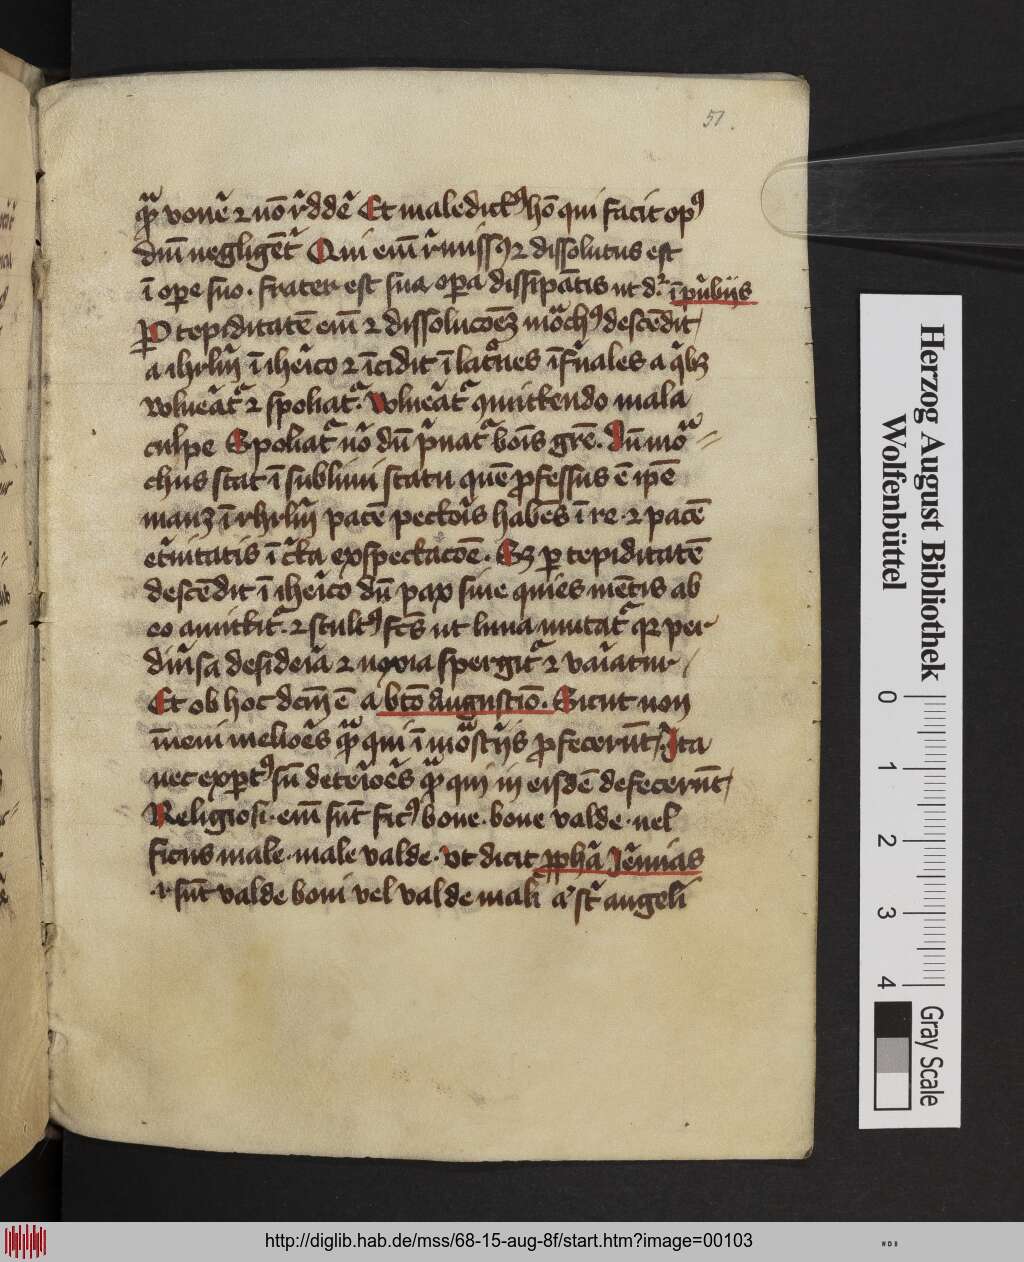 51.
qᷓ vouē ⁊ nō r̄ddē Et maledictꝰ hō qui facit opꝰ
dnī negligēt᷑ Qui eni᷑ r̄missꝰ ⁊ dissolutus est
ī ope suo · frater est sua opa dissipātis ut d᷑ ī puͥbijs
P tepiditatē eni᷑ ⁊ dissolucōeꝫ moᷓchꝰ descēdit
a ihrlm̄ ī iheͥco ⁊ īcidit ī latͦnes īfnͣales a qͥbꝫ
wlneāt᷑ ⁊ spoliat᷑ · Wlneāt᷑ quittendo mala
culpe Spoliat᷑ uͦo dū pͥuat᷑ boīs grē · Dū moᷓ
chus stat ī sublimi statu quē ꝓfessus ē ipē
manꝫ ī ihrlm̄ pacē pectoͥs habēs ī re · ⁊ pacē
et͛nitatis ī c͛ta exspectacōe · Sꝫ ꝑ tepiditatē
descēdit ī iheͥco dū pax siue quies mētis ab
eo amittit᷑ · ⁊ stultꝰ fcs̄ ut luna mutat᷑ qꝛ per
diu͛sa desideͥa ⁊ noxia spergit᷑ ⁊ vaͥatur
Et ob hoc dcm̄ ē a btō Augustīo · Sicut non
īueni melioēs qᷓ qui ī moᷓstijs ꝓfecerūt · Ita
nec exꝑtꝰ sū det͛ioēs qᷓ qui in eisdē defecerūt
Religiosi · eni᷑ sūt ficꝰ bone · bone valde · uel
ficus male · male valde · Vt dicit ꝓphā Jeͤmias
· r sūt valde boni vel valde mali aꝰ sr̄ angeli
Herzog August Bibliothek
Wolfenbüttel
0 1 2 3 4
Gray Scale
http://diglib.hab.de/mss/68-15-aug-8f/start.htm?image=00103
WDB